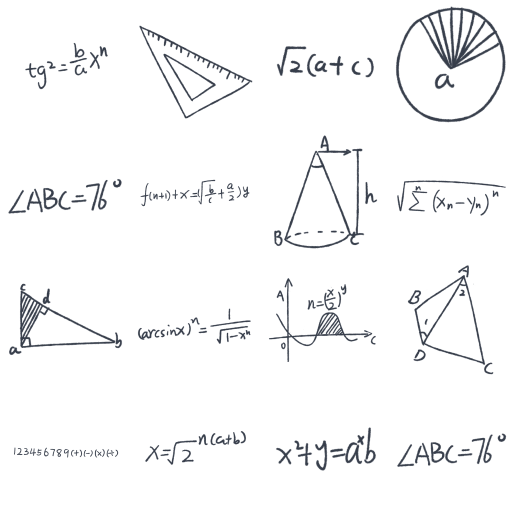 tg²=b/a xⁿ
√2(a+c)
a
∠ABC=76°
f(n+1)+x=(√(b/c)+a/2)y
A
h
B
C
√(∑ⁿ(xₙ-yₙ)ⁿ)
c
d
a
b
(arcsinx)ⁿ=1/√(1-xⁿ)
A
n=(x/2)^y
0
C
A
2
B
1
D
C
123456789(+)(-)(x)(÷)
X=√2^n(a+b)
x²+y=aˣb
∠ABC=76°